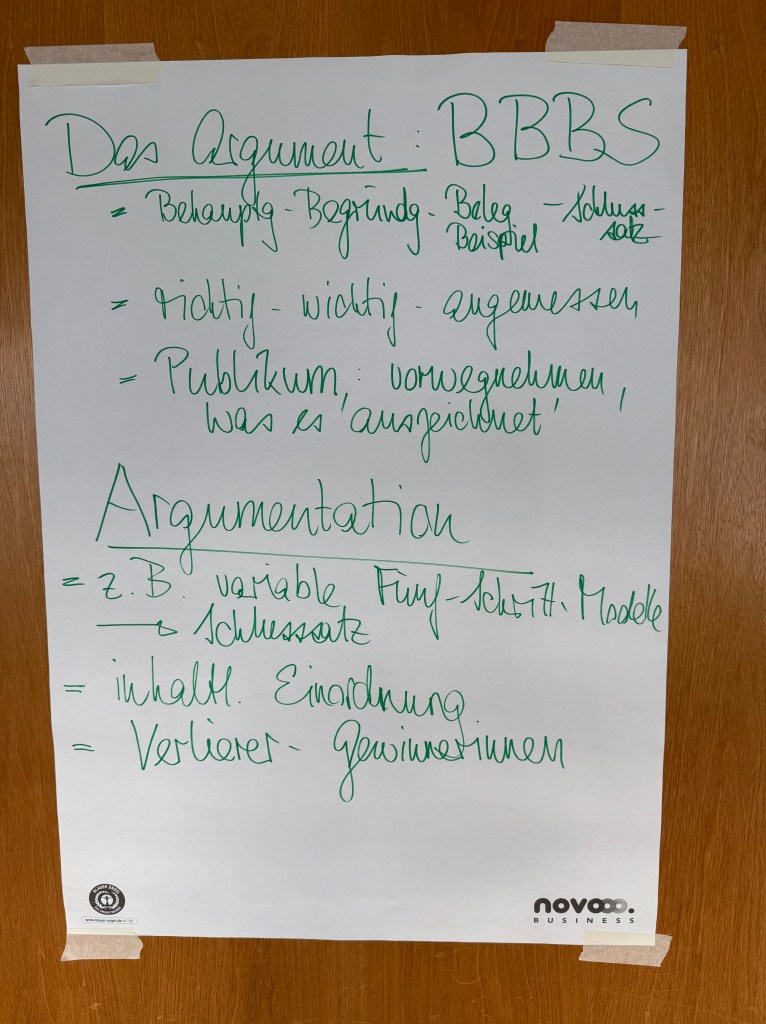 Das Argument: BBBS
= Behauptg - Begründg - Beleg - Schluss-
Beispiel satz
= richtig - wichtig - angemessen
= Publikum: vorwegnehmen,
was es 'auszeichnet'
Argumentation
= z.B. variable Fünf-Schritt-Modelle
→ Schlusssatz
= inhaltl. Einordnung
= Verlierer - Gewinnerinnen
BLAUER ENGEL
www.blauer-engel.de/uz14b
novooo.
BUSINESS